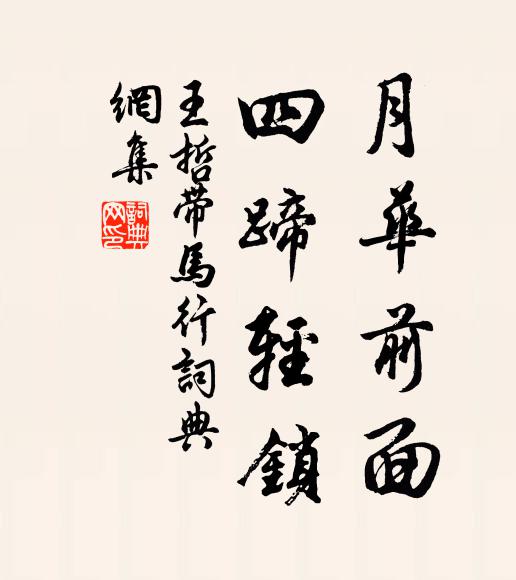 月華前面
四蹄輕鎖
王哲帶馬行詞典
網集
詞典
网印